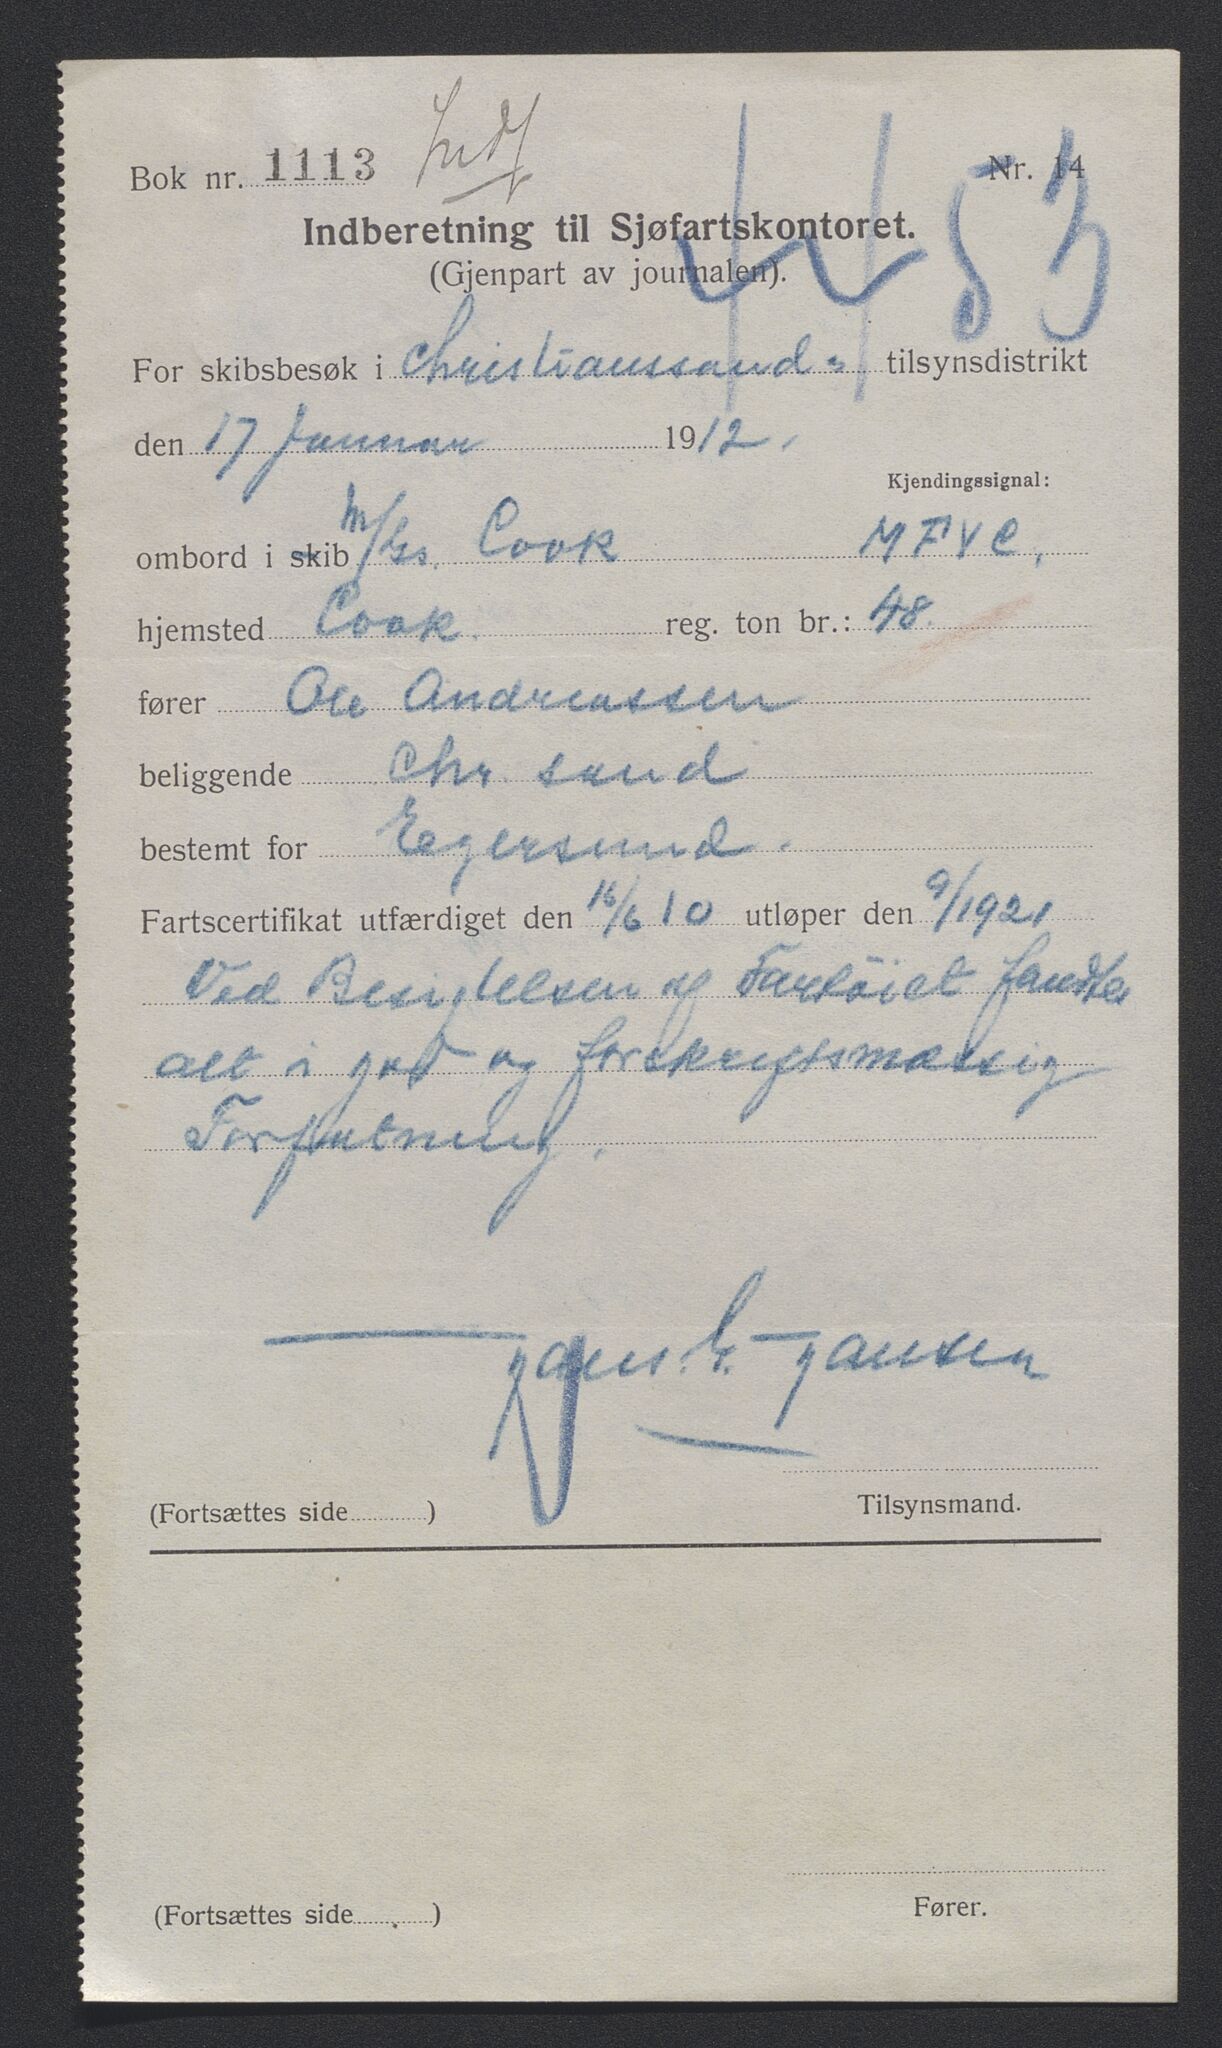 Bok nr. 1113 Indf
Nr. 14
4453
Indberetning til Sjøfartskontoret.
(Gjenpart av journalen).
For skibsbesøk i Christianssand s tilsynsdistrikt
den 17 Januar 1912.
Kjendingssignal:
ombord i skib M/Gs. Cook MFVC,
hjemsted Cook. reg. ton br.: 48.
fører Ole Andreassen
beliggende Chr. sand
bestemt for Eegersund.
Fartscertifikat utfærdiget den 16/6 10 utløper den 9/1921
Ved Besigtelsen af Fartöiet fandtes
alt i god og forskriftsmæssig
Forfatning.
Hans. G. Hansen
(Fortsættes side ) Tilsynsmand.
(Fortsættes side ) Fører.